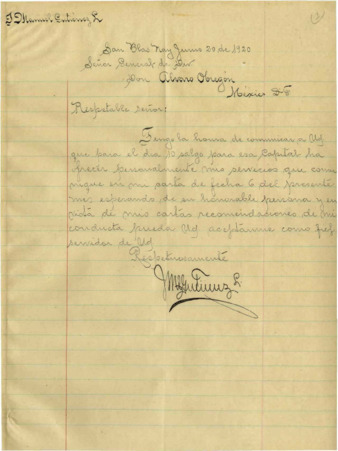 J Manuel Gutiérrez L
San Blas Nay Junio 20 de 1920
Señor General de Div
Don Alvaro Obregón
México D-F
Respetable señor:
Tengo la honra de comunicar a Ud
que para el dia 10 salgo para esa Capital ha
ofrecer personalmente mis servicios que comu
nique en mi carta de fecha 6 del presente
mes, esperando de su honorable persona y en
vista de mis cartas recomendaciones de mi
conducta pueda Ud aceptarme como fiel
servidor de Ud
Respetuosamente
JMGutierrez L.